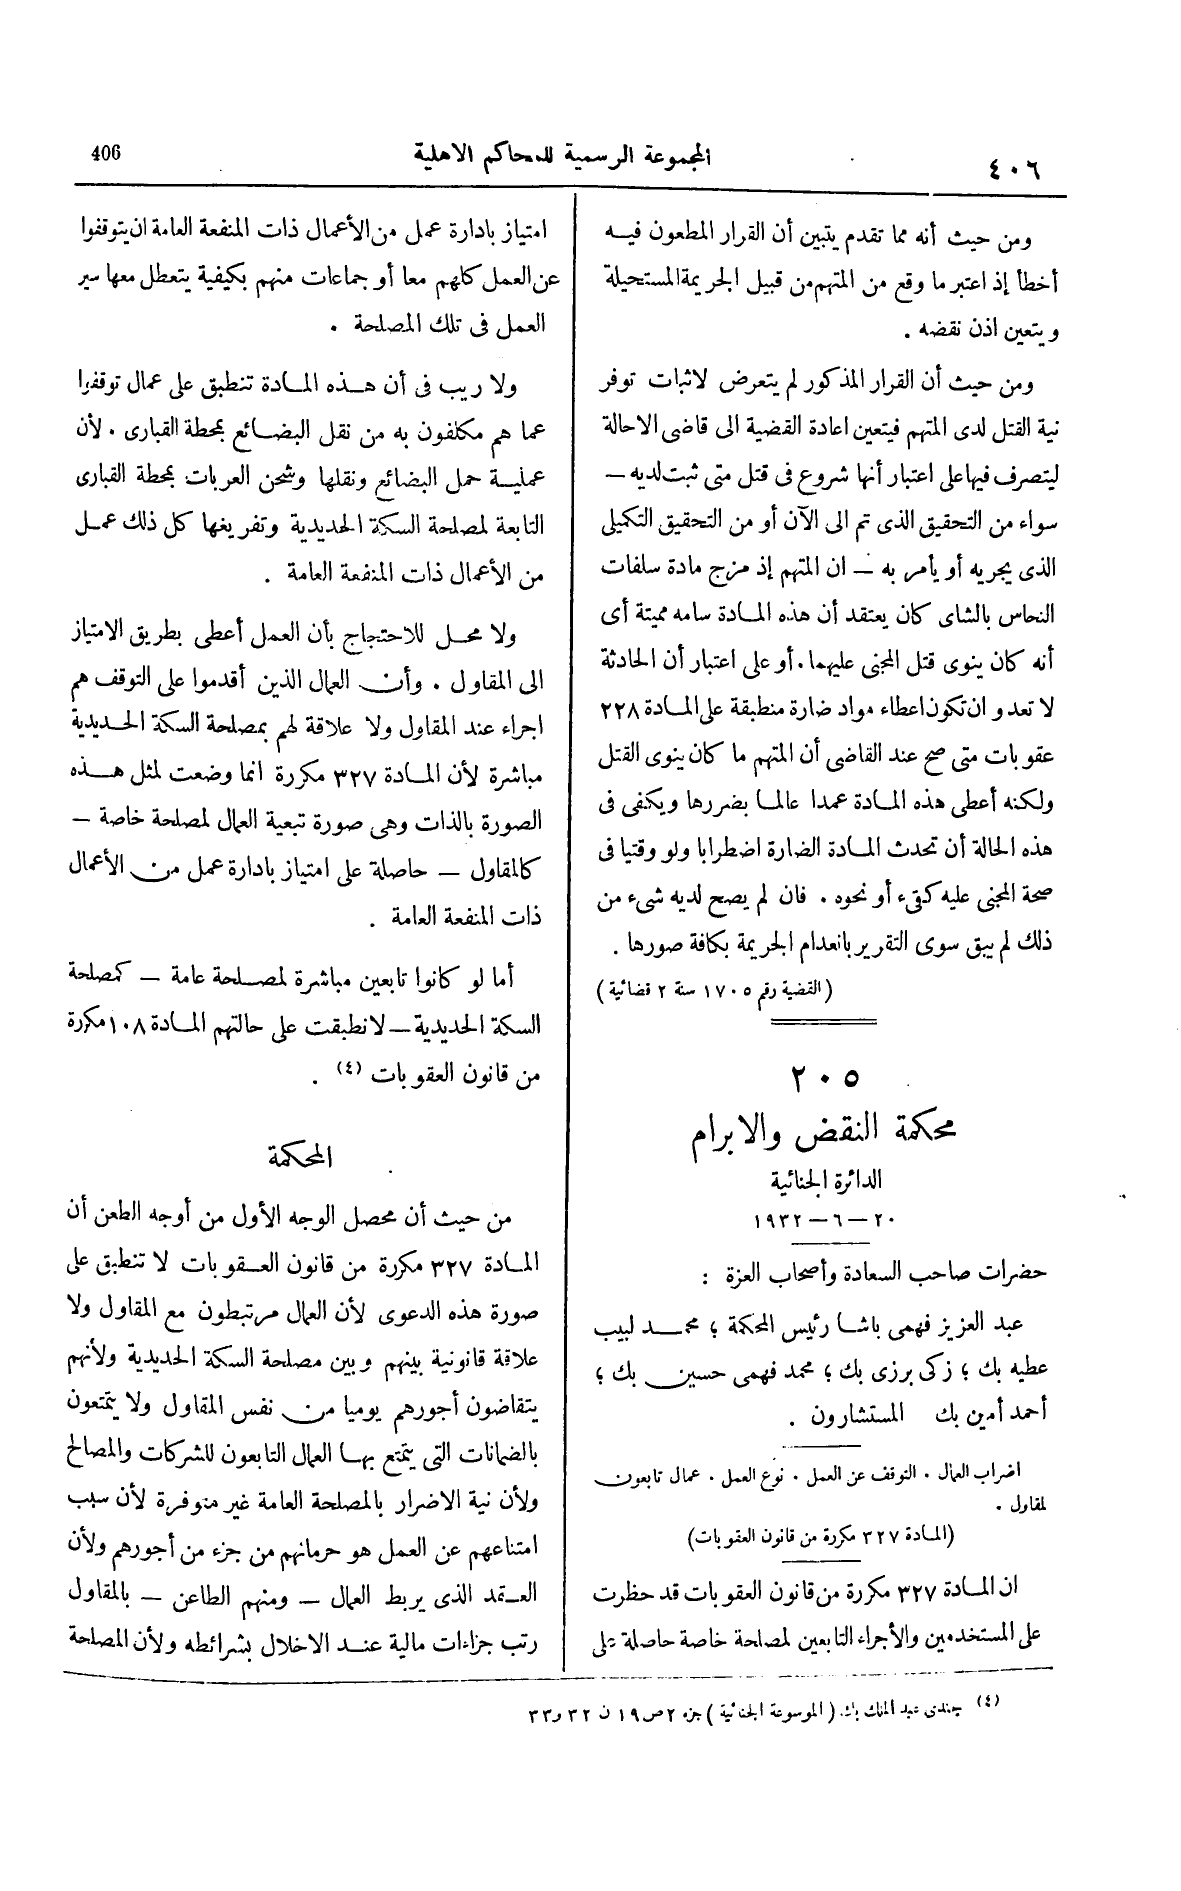 406
المجموعة الرسمية للمحاكم الاهلية
٤٠٦
ومن حيث أنه مما تقدم يتبين أن القرار المطعون فيه
أخطأ إذ اعتبر ما وقع من المتهم من قبيل الجريمة المستحيلة
ويتعين اذن نقضه .
ومن حيث أن القرار المذكور لم يتعرض لاثبات توفر
نية القتل لدى المتهم فيتعين اعادة القضية الى قاضى الاحالة
ليتصرف فيها على اعتبار أنها شروع فى قتل متى ثبت لديه —
سواء من التحقيق الذى تم الى الآن أو من التحقيق التكميلى
الذى يجريه أو يأمر به — ان المتهم إذ مزج مادة سلفات
النحاس بالشاى كان يعتقد أن هذه المادة سامه مميتة أى
أنه كان ينوى قتل المجنى عليهما . أو على اعتبار أن الحادثة
لا تعدو ان تكون اعطاء مواد ضارة منطبقة على المادة ٢٢٨
عقوبات متى صح عند القاضى أن المتهم ما كان ينوى القتل
ولكنه أعطى هذه المادة عمدا عالما بضررها ويكفى فى
هذه الحالة أن تحدث المادة الضارة اضطرابا ولو وقتيا فى
صحة المجنى عليه كقىء أو نحوه . فان لم يصح لديه شىء من
ذلك لم يبق سوى التقرير بانعدام الجريمة بكافة صورها .
(القضية رقم ١٧٠٥ سنة ٢ قضائية)
٢٠٥
محكمة النقض والابرام
الدائرة الجنائية
٢٠ — ٦ — ١٩٣٢
حضرات صاحب السعادة وأصحاب العزة :
عبد العزيز فهمى باشا رئيس المحكمة ؛ محمد لبيب
عطيه بك ؛ زكى برزى بك ؛ محمد فهمى حسين بك ؛
أحمد أمين بك المستشارون .
اضراب العمال . التوقف عن العمل . نوع العمل . عمال تابعون
لمقاول .
(المادة ٣٢٧ مكررة من قانون العقوبات)
ان المادة ٣٢٧ مكررة من قانون العقوبات قد حظرت
على المستخدمين والأجراء التابعين لمصلحة خاصة حاصلة على
امتياز بادارة عمل من الأعمال ذات المنفعة العامة ان يتوقفوا
عن العمل كلهم معا أو جماعات منهم بكيفية يتعطل معها سير
العمل فى تلك المصلحة .
ولا ريب فى أن هذه المادة تنطبق على عمال توقفوا
عما هم مكلفون به من نقل البضائع بمحطة القبارى . لأن
عملية حمل البضائع ونقلها وشحن العربات بمحطة القبارى
التابعة لمصلحة السكة الحديدية وتفريغها كل ذلك عمل
من الأعمال ذات المنفعة العامة .
ولا محل للاحتجاج بأن العمل أعطى بطريق الامتياز
الى المقاول . وأن العمال الذين أقدموا على التوقف هم
اجراء عند المقاول ولا علاقة لهم بمصلحة السكة الحديدية
مباشرة لأن المادة ٣٢٧ مكررة انما وضعت لمثل هذه
الصورة بالذات وهى صورة تبعية العمال لمصلحة خاصة —
كالمقاول — حاصلة على امتياز بادارة عمل من الأعمال
ذات المنفعة العامة .
أما لو كانوا تابعين مباشرة لمصلحة عامة — كمصلحة
السكة الحديدية — لانطبقت على حالتهم المادة ١٠٨ مكررة
من قانون العقوبات (٤) .
المحكمة
من حيث أن محصل الوجه الأول من أوجه الطعن أن
المادة ٣٢٧ مكررة من قانون العقوبات لا تنطبق على
صورة هذه الدعوى لأن العمال مرتبطون مع المقاول ولا
علاقة قانونية بينهم وبين مصلحة السكة الحديدية ولأنهم
يتقاضون أجورهم يوميا من نفس المقاول ولا يتمتعون
بالضمانات التى يتمتع بها العمال التابعون للشركات والمصالح
ولأن نية الاضرار بالمصلحة العامة غير متوفرة لأن سبب
امتناعهم عن العمل هو حرمانهم من جزء من أجورهم ولأن
العقد الذى يربط العمال — ومنهم الطاعن — بالمقاول
رتب جزاءات مالية عند الاخلال بشرائطه ولأن المصلحة
(٤) جندى عبد الملك بك (الموسوعة الجنائية) جزء ٢ ص ١٩ ن ٣٢ و٣٣